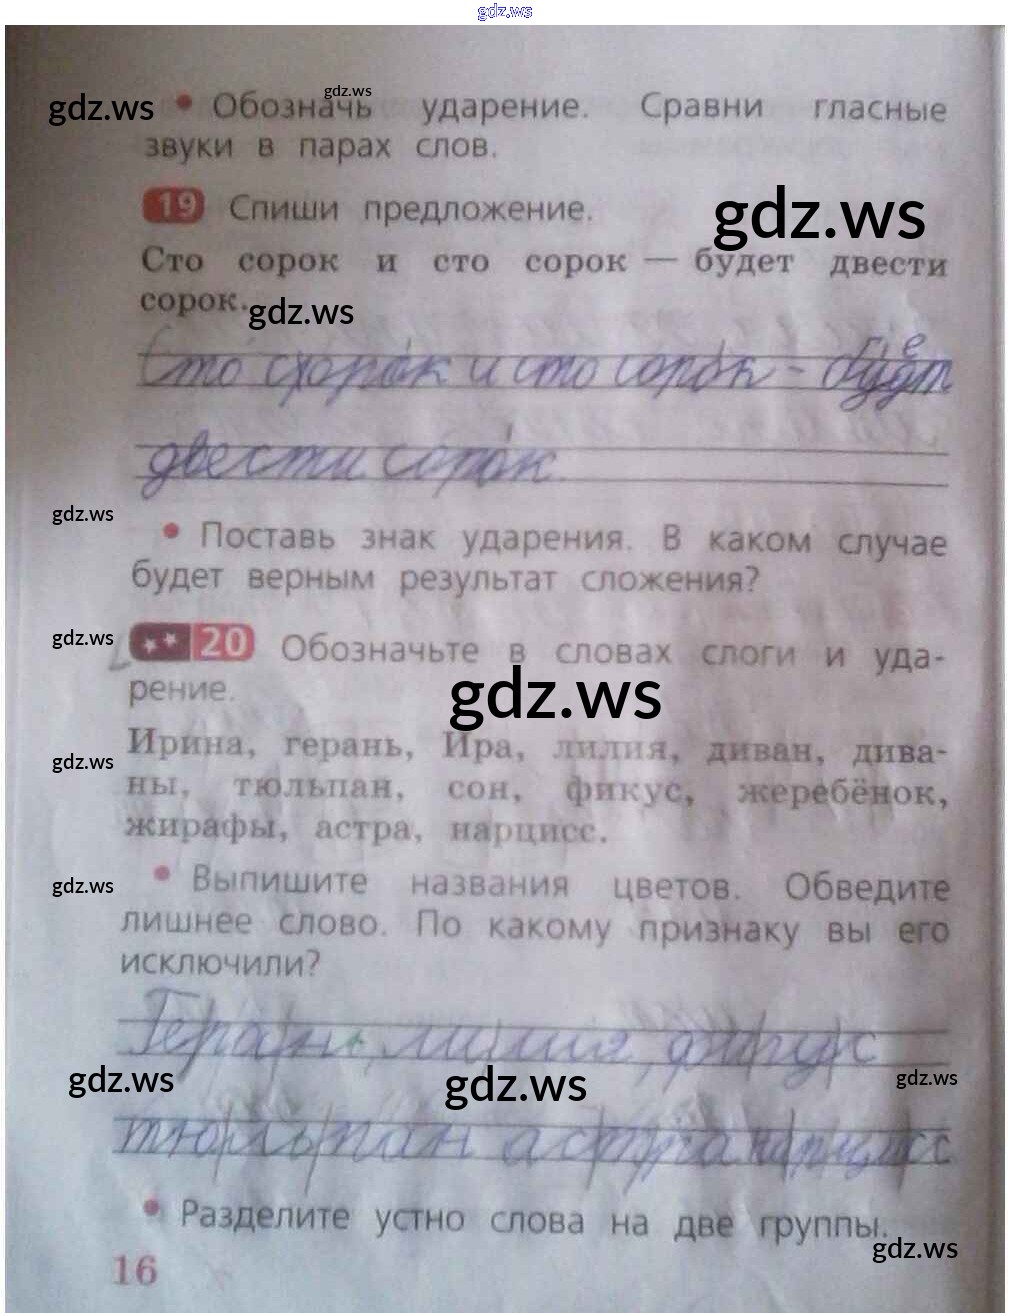 gdz.ws
gdz.ws
gdz.ws • Обозначь ударение. Сравни гласные
звуки в парах слов.
19 Спиши предложение.
gdz.ws
Сто сорок и сто сорок — будет двести
сорок.
gdz.ws
Сто сорок и сто сорок - будет
двести сорок.
gdz.ws
• Поставь знак ударения. В каком случае
будет верным результат сложения?
gdz.ws
20 Обозначьте в словах слоги и уда-
рение.
gdz.ws
Ирина, герань, Ира, лилия, диван, дива-
gdz.ws
ны, тюльпан, сон, фикус, жеребёнок,
жирафы, астра, нарцисс.
gdz.ws
• Выпишите названия цветов. Обведите
лишнее слово. По какому признаку вы его
исключили?
Герань, лилия, фикус
gdz.ws
gdz.ws
gdz.ws
тюльпан астра нарцисс
• Разделите устно слова на две группы.
gdz.ws
16